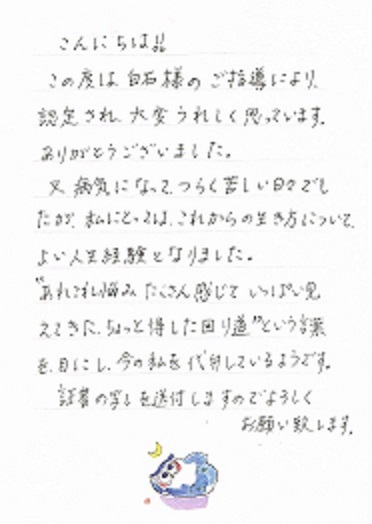 こんにちは!!
この度は、白石様のご指導により、
認定され、大変うれしく思っています。
ありがとうございました。
又、病気になって、つらく苦しい日々でし
たが、私にとっては、これからの生き方について、
よい人生経験となりました。
"あれこれ悩み たくさん感じて いっぱい見
えてきた、ちょっと得した回り道"という言葉
を、目にし、今の私を代弁しているようです。
証書の写しを送付しますのでよろしく
お願い致します。